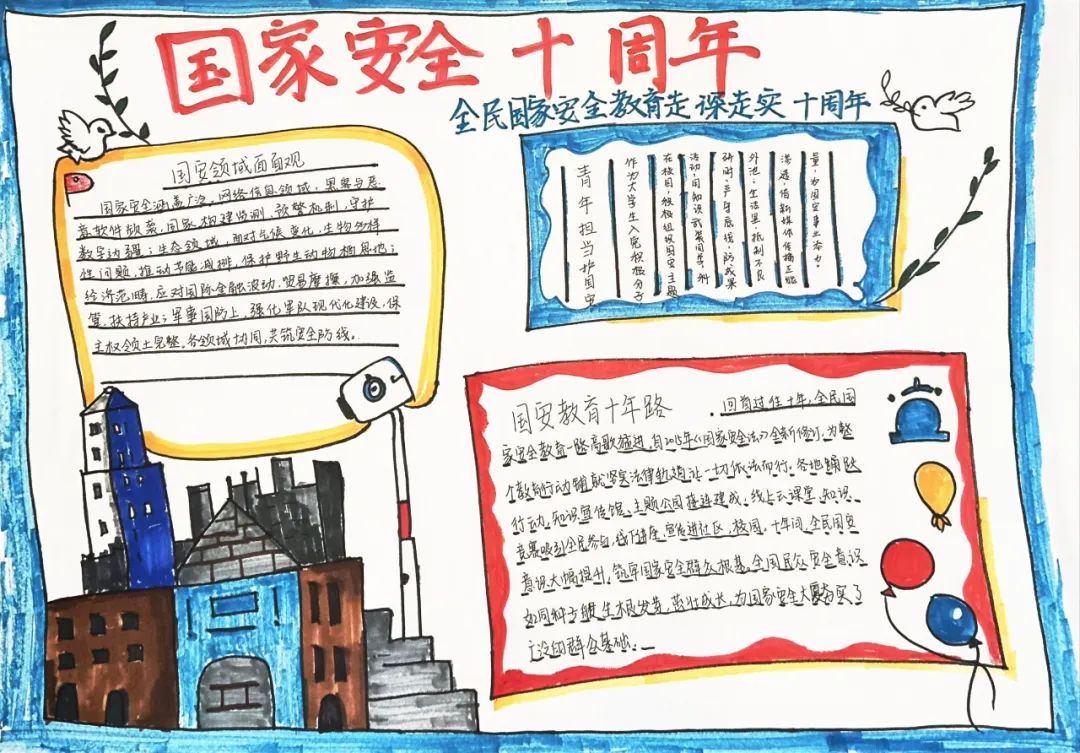 国家安全十周年
全民国家安全教育走深走实十周年
国安领域面面观
国家安全涵盖广泛,网络信息领域,黑客与恶
意软件频袭,国家构建监测、预警机制,守护
数字边疆;生态领域,面对气候变化,生物多样
性问题,推动节能减排,保护野生动物栖息地;
经济范畴,应对国际金融波动、贸易摩擦,加强监
管,扶持产业;军事国防上,强化军队现代化建设,保
主权领土完整,各领域协同,共筑安全防线。
青年担当护国安
作为大学生入党积极分子
在校园,积极组织国安主题
活动,用知识武装同学,科
研时,严守底线,防成果
外泄;生活里,抵制不良
渗透,借新媒体传播正能
量,为国安事业添力。
国安教育十年路
回首过往十年,全民国
家安全教育一路高歌猛进,自2015年《国家安全法》全新修订,为整
个教育行动铺就坚实法律轨道,让一切依法而行。各地踊跃
行动,知识宣传馆、主题公园接连建成,线上云课堂、知识
竞赛吸引全民参与,线下讲座、宣传进社区、校园,十年间,全民国安
意识大幅提升,筑牢国家安全群众根基。全国民众安全意识
如同种子般生根发芽,茁壮成长,为国家安全大厦夯实了
广泛的群众基础。